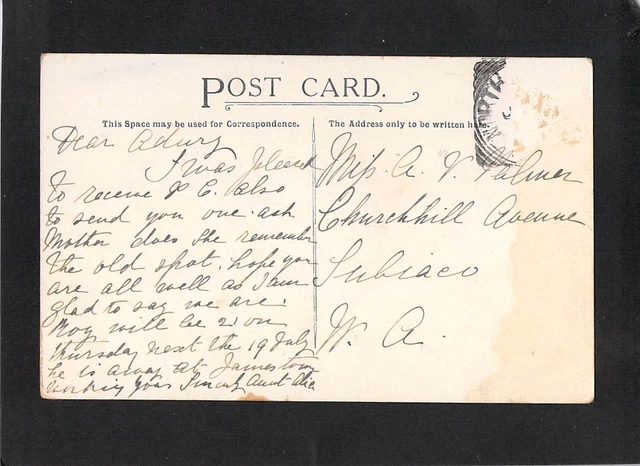 POST CARD.
This Space may be used for Correspondence.
The Address only to be written here.
Dear
I was pleased
to receive P C. also
to send you one. ask
Mother does she remember
the old spot. hope you
are all well as I am
glad to say we are.
Roy will be 21 on
thursday next the 19 July
he is away at Jamestown
working your Aunt
Miss A. V. Palmer
Churchhill Avenue
Subiaco
W. A.
NORTH